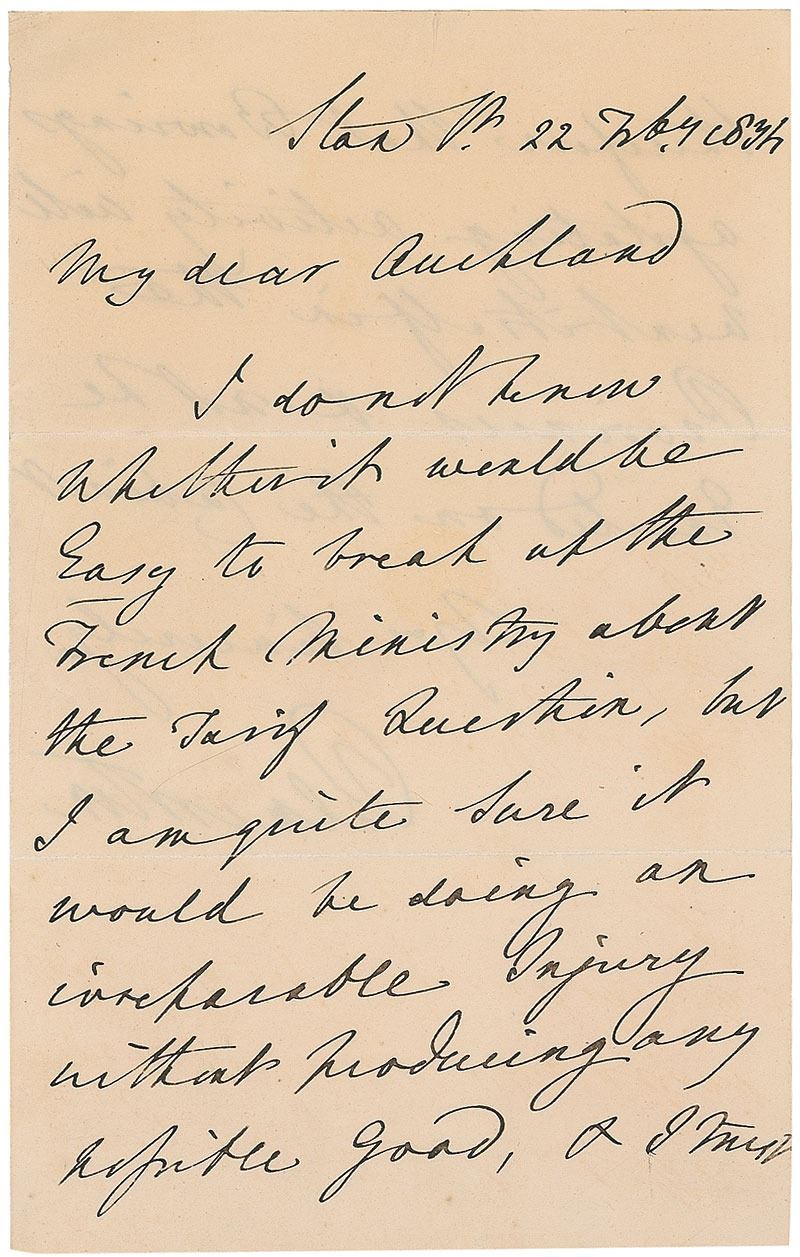 Stan St. 22 Feby 1834
My dear Auckland
I do not know
whether it would be
Easy to break up the
French Ministry about
the Tarif Question, but
I am quite sure it
would be doing an
irreparable Injury
without producing any
possible Good, & I trust